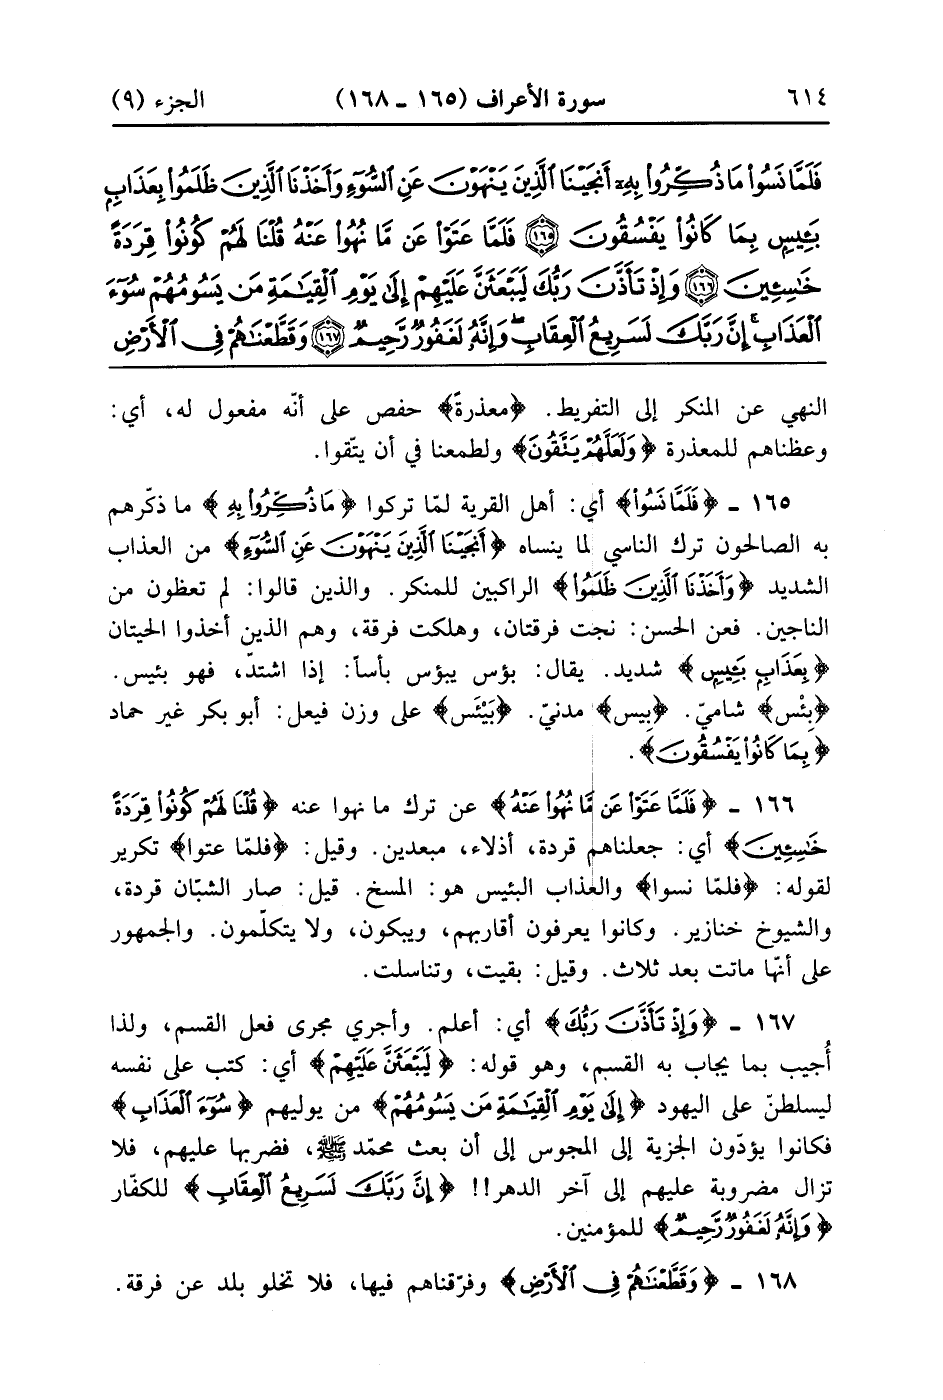 ٦١٤ سورة الأعراف (١٦٥ ـ ١٦٨) الجزء (٩)
فَلَمَّا نَسُوا۟ مَا ذُكِّرُوا۟ بِهِۦٓ أَنجَيْنَا ٱلَّذِينَ يَنْهَوْنَ عَنِ ٱلسُّوٓءِ وَأَخَذْنَا ٱلَّذِينَ ظَلَمُوا۟ بِعَذَابٍۭ
بَـِٔيسٍۭ بِمَا كَانُوا۟ يَفْسُقُونَ ﴿١٦٥﴾ فَلَمَّا عَتَوْا۟ عَن مَّا نُهُوا۟ عَنْهُ قُلْنَا لَهُمْ كُونُوا۟ قِرَدَةً
خَـٰسِـِٔينَ ﴿١٦٦﴾ وَإِذْ تَأَذَّنَ رَبُّكَ لَيَبْعَثَنَّ عَلَيْهِمْ إِلَىٰ يَوْمِ ٱلْقِيَـٰمَةِ مَن يَسُومُهُمْ سُوٓءَ
ٱلْعَذَابِ ۗ إِنَّ رَبَّكَ لَسَرِيعُ ٱلْعِقَابِ ۖ وَإِنَّهُۥ لَغَفُورٌ رَّحِيمٌ ﴿١٦٧﴾ وَقَطَّعْنَـٰهُمْ فِى ٱلْأَرْضِ
النهي عن المنكر إلى التفريط. ﴿معذرةً﴾ حفص على أنّه مفعول له، أي:
وعظناهم للمعذرة ﴿وَلَعَلَّهُمْ يَتَّقُونَ﴾ ولطمعنا في أن يتّقوا.
١٦٥ ـ ﴿فَلَمَّا نَسُوا۟﴾ أي: أهل القرية لمّا تركوا ﴿مَا ذُكِّرُوا۟ بِهِۦ﴾ ما ذكّرهم
به الصالحون ترك الناسي لما ينساه ﴿أَنجَيْنَا ٱلَّذِينَ يَنْهَوْنَ عَنِ ٱلسُّوٓءِ﴾ من العذاب
الشديد ﴿وَأَخَذْنَا ٱلَّذِينَ ظَلَمُوا۟﴾ الراكبين للمنكر. والذين قالوا: لم تعظون من
الناجين. فعن الحسن: نجت فرقتان، وهلكت فرقة، وهم الذين أخذوا الحيتان
﴿بِعَذَابٍۭ بَـِٔيسٍۭ﴾ شديد. يقال: بؤس يبؤس بأساً: إذا اشتدّ، فهو بئيس.
﴿بِئْس﴾ شاميّ. ﴿بِيس﴾ مدنيّ. ﴿بَيْئَس﴾ على وزن فيعل: أبو بكر غير حماد
﴿بِمَا كَانُوا۟ يَفْسُقُونَ﴾.
١٦٦ ـ ﴿فَلَمَّا عَتَوْا۟ عَن مَّا نُهُوا۟ عَنْهُ﴾ عن ترك ما نهوا عنه ﴿قُلْنَا لَهُمْ كُونُوا۟ قِرَدَةً
خَـٰسِـِٔينَ﴾ أي: جعلناهم قردة، أذلاء، مبعدين. وقيل: ﴿فلمّا عتوا﴾ تكرير
لقوله: ﴿فلمّا نسوا﴾ والعذاب البئيس هو: المسخ. قيل: صار الشبّان قردة،
والشيوخ خنازير. وكانوا يعرفون أقاربهم، ويبكون، ولا يتكلّمون. والجمهور
على أنّها ماتت بعد ثلاث. وقيل: بقيت، وتناسلت.
١٦٧ ـ ﴿وَإِذْ تَأَذَّنَ رَبُّكَ﴾ أي: أعلم. وأجري مجرى فعل القسم، ولذا
أُجيب بما يجاب به القسم، وهو قوله: ﴿لَيَبْعَثَنَّ عَلَيْهِمْ﴾ أي: كتب على نفسه
ليسلطنّ على اليهود ﴿إِلَىٰ يَوْمِ ٱلْقِيَـٰمَةِ مَن يَسُومُهُمْ﴾ من يوليهم ﴿سُوٓءَ ٱلْعَذَابِ﴾
فكانوا يؤدّون الجزية إلى المجوس إلى أن بعث محمّد ﷺ، فضربها عليهم، فلا
تزال مضروبة عليهم إلى آخر الدهر!! ﴿إِنَّ رَبَّكَ لَسَرِيعُ ٱلْعِقَابِ﴾ للكفّار
﴿وَإِنَّهُۥ لَغَفُورٌ رَّحِيمٌ﴾ للمؤمنين.
١٦٨ ـ ﴿وَقَطَّعْنَـٰهُمْ فِى ٱلْأَرْضِ﴾ وفرّقناهم فيها، فلا تخلو بلد عن فرقة.